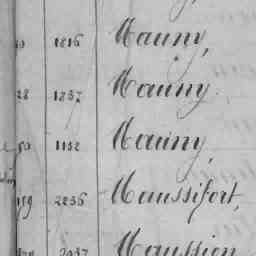 1816 Mauny,
28 1237 Mauny.
50 1152 Mauny,
199 2256 Maussifort,
2037 Maussion